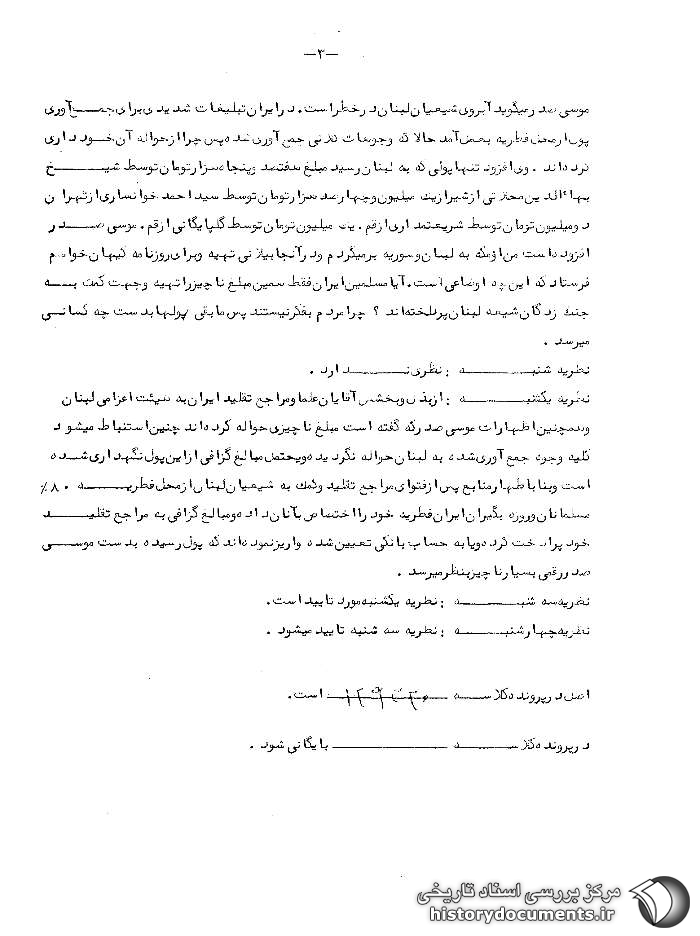 —۳—
موسی صدر میگوید آبروی شیعیان لبنان در خطر است. در ایران تبلیغات شدیدی برای جمع آوری
پول از محل فطریه بعمل آمد حالا که وجوهات کلانی جمع آوری شده پس چرا از حواله آن خودداری
کرده‌اند . وی افزود تنها پولی که به لبنان رسید مبلغ هفتصد وپنجاه هزار تومان توسط شیخ
بهاءالدین محلاتی از شیراز یک میلیون وچهارصد هزار تومان توسط سید احمد خوانساری از تهران
دو میلیون تومان توسط شریعتمداری از قم . یک میلیون تومان توسط گلپایگانی از قم . موسی صدر
افزوده است من اینکه به لبنان وسوریه برمیگردم ودر آنجا بیلانی تهیه وبرای روزنامه کیهان خواهم
فرستاد که این چه اوضاعی است. آیا مسلمین ایران فقط همین مبلغ ناچیز را تهیه وجهت کمک به
جنگ زدگان شیعه لبنان پرداخته‌اند ؟ چرا مردم بفکر نیستند پس مابقی پولها بدست چه کسانی
میرسد .
نظریه شنبه : نظری ندارد .
نظریه یکشنبه : از بذل وبخشش آقایان علما ومراجع تقلید ایران به هیئت اعزامی لبنان
وهمچنین اظهارات موسی صدر که گفته است مبلغ ناچیزی حواله کرده‌اند چنین استنباط میشود
کلیه وجوه جمع آوری شده به لبنان حواله نگردیده ویحتمل مبالغ گزافی از این پول نگهداری شده
است وبنا باظهار منابع پس از فتوای مراجع تقلید وکمک به شیعیان لبنان از محل فطریه ۸۰٪
مسلمانان وروزه بگیران ایران فطریه خود را اختصاص بآنان داده ومبالغ گزافی به مراجع تقلید
خود پرداخت کرده ویا به حساب بانکی تعیین شده واریز نموده‌اند که پول رسیده بدست موسی
صدر رقمی بسیار ناچیز بنظر میرسد .
نظریه سه شنبه : نظریه یکشنبه مورد تایید است.
نظریه چهارشنبه : نظریه سه شنبه تایید میشود .
اصل در پرونده کلاسه است.
در پرونده کلاسه بایگانی شود .
مرکز بررسی اسناد تاریخی
historydocuments.ir